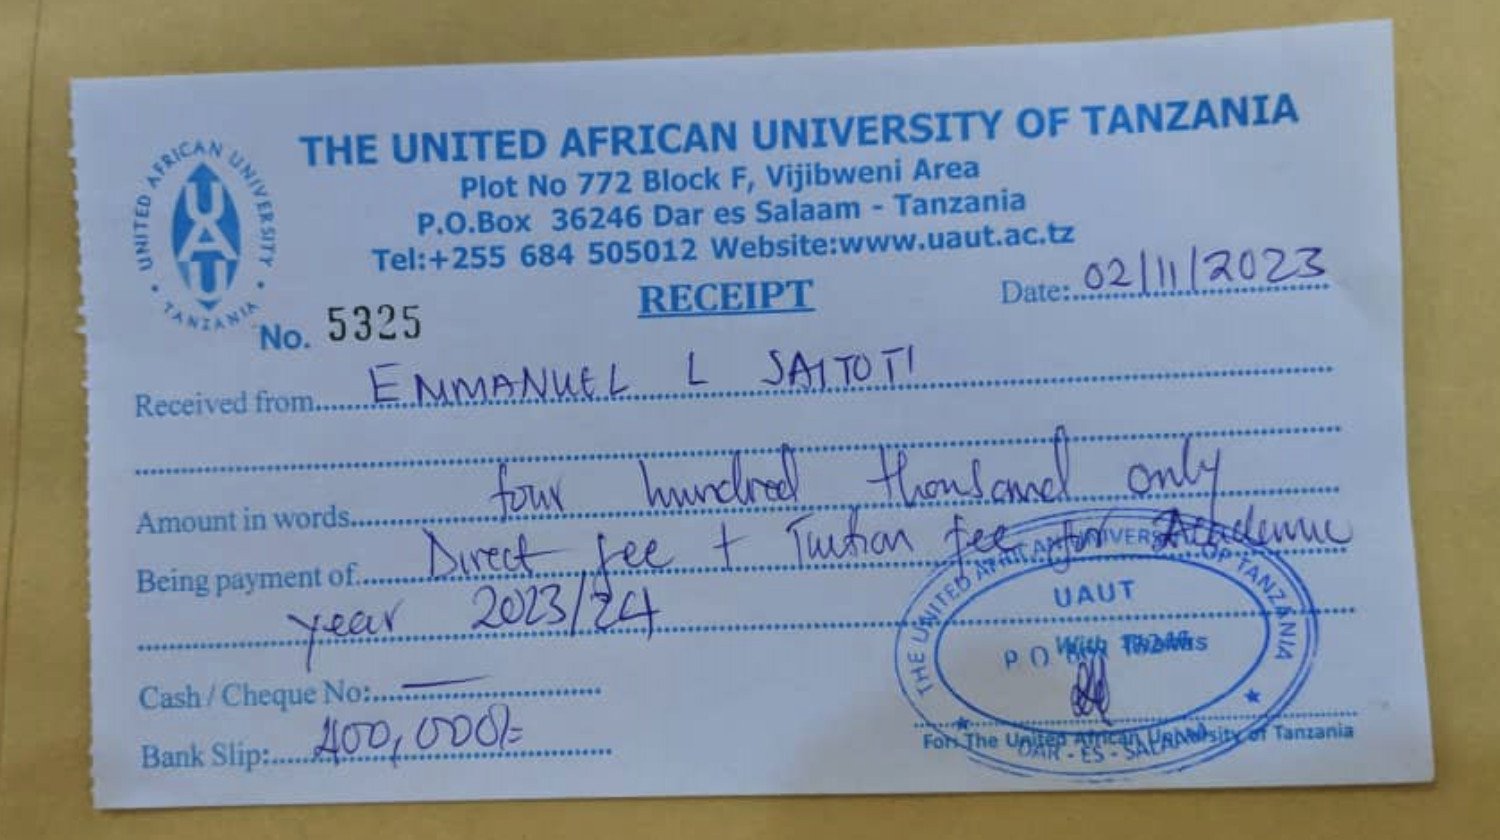 UNITED AFRICAN UNIVERSITY
UAUT
TANZANIA
THE UNITED AFRICAN UNIVERSITY OF TANZANIA
Plot No 772 Block F, Vijibweni Area
P.O.Box 36246 Dar es Salaam - Tanzania
Tel:+255 684 505012 Website:www.uaut.ac.tz
RECEIPT
Date: 02/11/2023
No. 5325
Received from EMMANUEL L SAITOTI
Amount in words four hundred thousand only
Being payment of Direct fee + Tuition fee for Academic
year 2023/24
THE UNITED AFRICAN UNIVERSITY OF TANZANIA
UAUT
P O
With Thanks
Cash / Cheque No: —
Bank Slip: 400,000/=
For: The United African University of Tanzania
DAR - ES - SALAAM